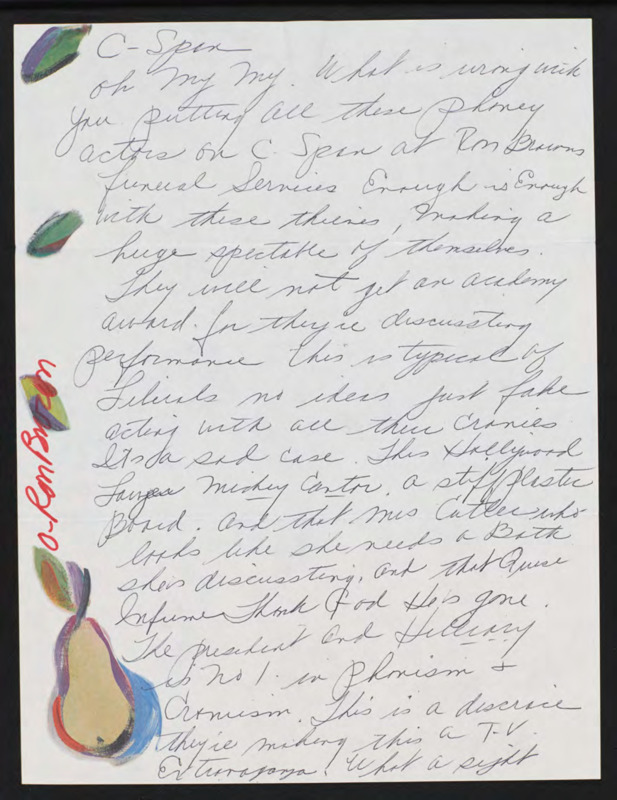 C-Span
oh My My. What is wrong with
you putting all these phoney
actors on C. Span at Ron Browns
funeral Services Enough is Enough
with these thieves, making a
huge spectable of themselves.
They will not get an academy
award for they're discussting
performance this is typical of
Liberals no ideas just fake
acting with all their Cronies
Its a sad case. This Hollywood
Mickey Cantor, a stiff plastic
Board. and that Mrs Cutler who
looks like she needs a Bath
she's discussting. and that
Thank God He's gone.
The president and Hillary
is No 1. in Phonism &
Cronism. This is a discrace
they're making this a T-V.
Extravaganza! What a sight
O-Ron Brown